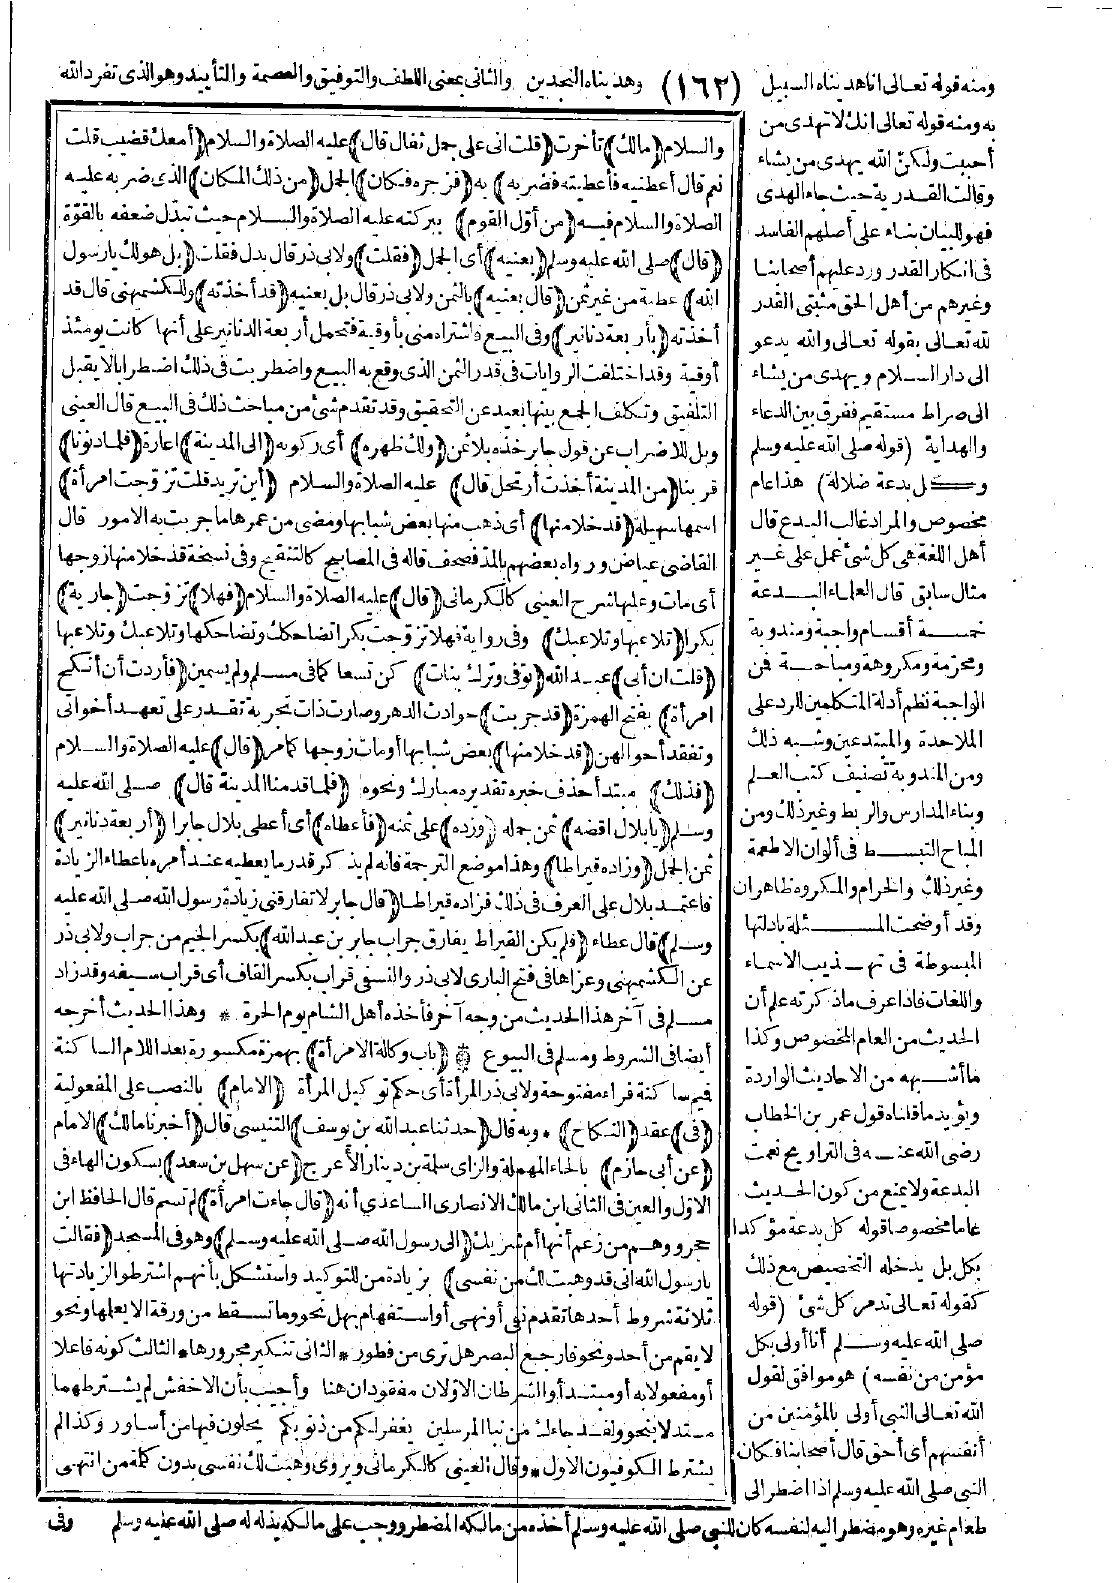 ومنه قوله تعالى انا هديناه السبيل (١٦٢) وهديناه النجدين والثانى بمعنى اللطف والتوفيق والعصمة والتأييد وهو الذى تفرد الله
به ومنه قوله تعالى انك لا تهدى من
أحببت ولكن الله يهدى من يشاء
وقالت القدرية حيث جاء الهدى
فهو للبيان بناء على أصلهم الفاسد
فى انكار القدر ورد عليهم أصحابنا
وغيرهم من أهل الحق مثبتى القدر
لله تعالى بقوله تعالى والله يدعو
الى دار السلام ويهدى من يشاء
الى صراط مستقيم ففرق بين الدعاء
والهداية (قوله صلى الله عليه وسلم
وكل بدعة ضلالة) هذا عام
مخصوص والمراد غالب البدع قال
أهل اللغة هى كل شئ عمل على غير
مثال سابق قال العلماء البدعة
خمسة أقسام واجبة ومندوبة
ومحرمة ومكروهة ومباحة فمن
الواجبة نظم أدلة المتكلمين للرد على
الملاحدة والمبتدعين وشبه ذلك
ومن المندوبة تصنيف كتب العلم
وبناء المدارس والربط وغير ذلك ومن
المباح التبسط فى ألوان الاطعمة
وغير ذلك والحرام والمكروه ظاهران
وقد أوضحت المسئلة بادلتها
المبسوطة فى تهذيب الاسماء
واللغات فاذا عرف ماذكرته علم أن
الحديث من العام المخصوص وكذا
ما أشبهه من الاحاديث الواردة
ويؤيد ماقلناه قول عمر بن الخطاب
رضى الله عنه فى التراويح نعمت
البدعة ولا يمنع من كون الحديث
عاما مخصوصا قوله كل بدعة مؤكدا
بكل بل يدخله التخصيص مع ذلك
كقوله تعالى تدمر كل شئ (قوله
صلى الله عليه وسلم أنا أولى بكل
مؤمن من نفسه) هو موافق لقول
الله تعالى النبى أولى بالمؤمنين من
أنفسهم أى أحق قال أصحابنا فكان
النبى صلى الله عليه وسلم اذا اضطر الى
والسلام (مالك) تأخرت (قلت انى على جمل ثفال قال) عليه الصلاة والسلام (أمعك قضيب قلت
نعم قال أعطنيه فأعطيته فضربه) به (فزجره فكان) الجمل (من ذلك المكان) الذى ضربه عليه
الصلاة والسلام فيه (من أول القوم) ببركته عليه الصلاة والسلام حيث تبدل ضعفه بالقوة
(قال) صلى الله عليه وسلم (بعنيه) أى الجمل (فقلت) ولابى ذر قال بدل فقلت (بل هو لك يارسول
الله) عطية من غير ثمن (قال بعنيه) بالثمن ولابى ذر قال بل بعنيه (قد أخذته) وللكشميهنى قال قد
أخذته (بأربعة دنانير) وفى البيع فاشتراه منى بأوقية فتحمل أربعة الدنانير على أنها كانت يومئذ
أوقية وقد اختلفت الروايات فى قدر الثمن الذى وقع به البيع واضطربت فى ذلك اضطرابا لا يقبل
التلفيق وتكلف الجمع بينها بعيد عن التحقيق وقد تقدم شئ من مباحث ذلك فى البيع قال العينى
وبل للاضراب عن قول جابر خذه بلا ثمن (ولك ظهره) أى ركوبه (الى المدينة) اعارة (فلما دنونا)
قربنا (من المدينة أخذت أرتحل قال) عليه الصلاة والسلام (أين تريد قلت تزوجت امرأة)
اسمها سهيلة (قد خلا منها) أى ذهب منها بعض شبابها ومضى من عمرها ما جربت به الامور قال
القاضى عياض ورواه بعضهم بالمد فصحف قاله فى المصابيح كالتنقيح وفى نسخة قد خلا منها زوجها
أى مات وعليها شرح العينى كالكرمانى (قال) عليه الصلاة والسلام (فهلا) تزوجت (جارية)
بكرا (تلاعبها وتلاعبك) وفى رواية فهلا تزوجت بكرا تضاحكك وتضاحكها وتلاعبك وتلاعبها
(قلت ان أبى) عبد الله (توفى وترك بنات) كن تسعا كما فى مسلم ولم يسمين (فأردت أن أنكح
امرأة) بفتح الهمزة (قد جربت) حوادث الدهر وصارت ذات تجربة تقدر على تعهد أخواتى
وتفقد أحوالهن (قد خلا منها) بعض شبابها أو مات زوجها كما مر (قال) عليه الصلاة والسلام
(فذلك) مبتدأ حذف خبره تقديره مبارك ونحوه (فلما قدمنا المدينة قال) صلى الله عليه
وسلم (يا بلال اقضه) ثمن جمله (وزده) على ثمنه (فأعطاه) أى أعطى بلال جابرا (أربعة دنانير)
ثمن الجمل (وزاده قيراطا) وهذا موضع الترجمة فانه لم يذكر قدر ما يعطيه عند أمره باعطاء الزيادة
فاعتمد بلال على العرف فى ذلك فزاده قيراطا (قال جابر لا تفارقنى زيادة رسول الله صلى الله عليه
وسلم) قال عطاء (فلم يكن القيراط يفارق جراب جابر بن عبد الله) بكسر الجيم من جراب ولابى ذر
عن الكشميهنى وعزاها فى فتح البارى لابى ذر والنسفى قراب بكسر القاف أى قراب سيفه وقد زاد
مسلم فى آخر هذا الحديث من وجه آخر فأخذه أهل الشام يوم الحرة * وهذا الحديث أخرجه
أيضا فى الشروط ومسلم فى البيوع * (باب وكالة الامرأة) بهمزة مكسورة بعد اللام الساكنة
فميم ساكنة فراء مفتوحة ولابى ذر المرأة أى حكم توكيل المرأة (الامام) بالنصب على المفعولية
(فى) عقد (النكاح) * وبه قال (حدثنا عبد الله بن يوسف) التنيسى قال (أخبرنا مالك) الامام
(عن أبى حازم) بالحاء المهملة والزاى سلمة بن دينار الأعرج (عن سهل بن سعد) بسكون الهاء فى
الاول والعين فى الثانى ابن مالك الانصارى الساعدى أنه (قال جاءت امرأة) لم تسم قال الحافظ ابن
حجر ووهم من زعم أنها أم شريك (الى رسول الله صلى الله عليه وسلم) وهو فى المسجد (فقالت
يارسول الله انى قد وهبت لك من نفسى) بزيادة من للتوكيد واستشكل بأنهم اشترطوا لزيادتها
ثلاثة شروط أحدها تقدم نفى أو نهى أو استفهام بهل نحو وما تسقط من ورقة الا يعلمها ونحو
لا يقم من أحد ونحو فارجع البصر هل ترى من فطور * الثانى تنكير مجرورها * الثالث كونه فاعلا
أو مفعولا به أو مبتدأ والشرطان الاولان مفقودان هنا وأجيب بأن الاخفش لم يشترطهما
مستدلا بنحو ولقد جاءك من نبا المرسلين يغفر لكم من ذنوبكم يحلون فيها من أساور وكذا لم
يشترط الكوفيون الاول * وقال العينى كالكرمانى ويروى وهبت لك نفسى بدون كلمة من انتهى
طعام غيره وهو مضطر اليه لنفسه كان للنبى صلى الله عليه وسلم أخذه من مالكه المضطر ووجب على مالكه بذله له صلى الله عليه وسلم وفى